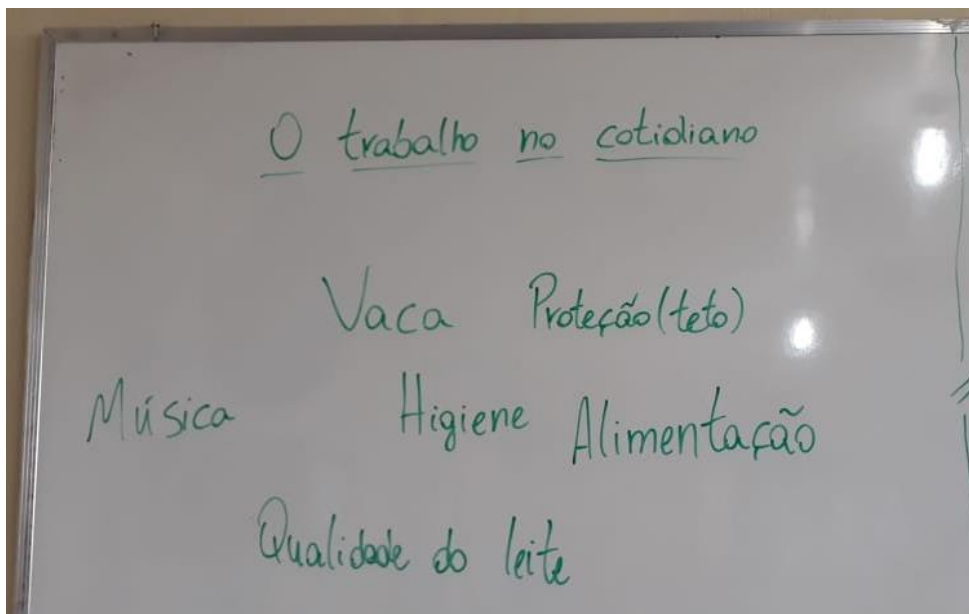 O trabalho no cotidiano
Vaca Proteção (teto)
Música Higiene Alimentação
Qualidade do leite